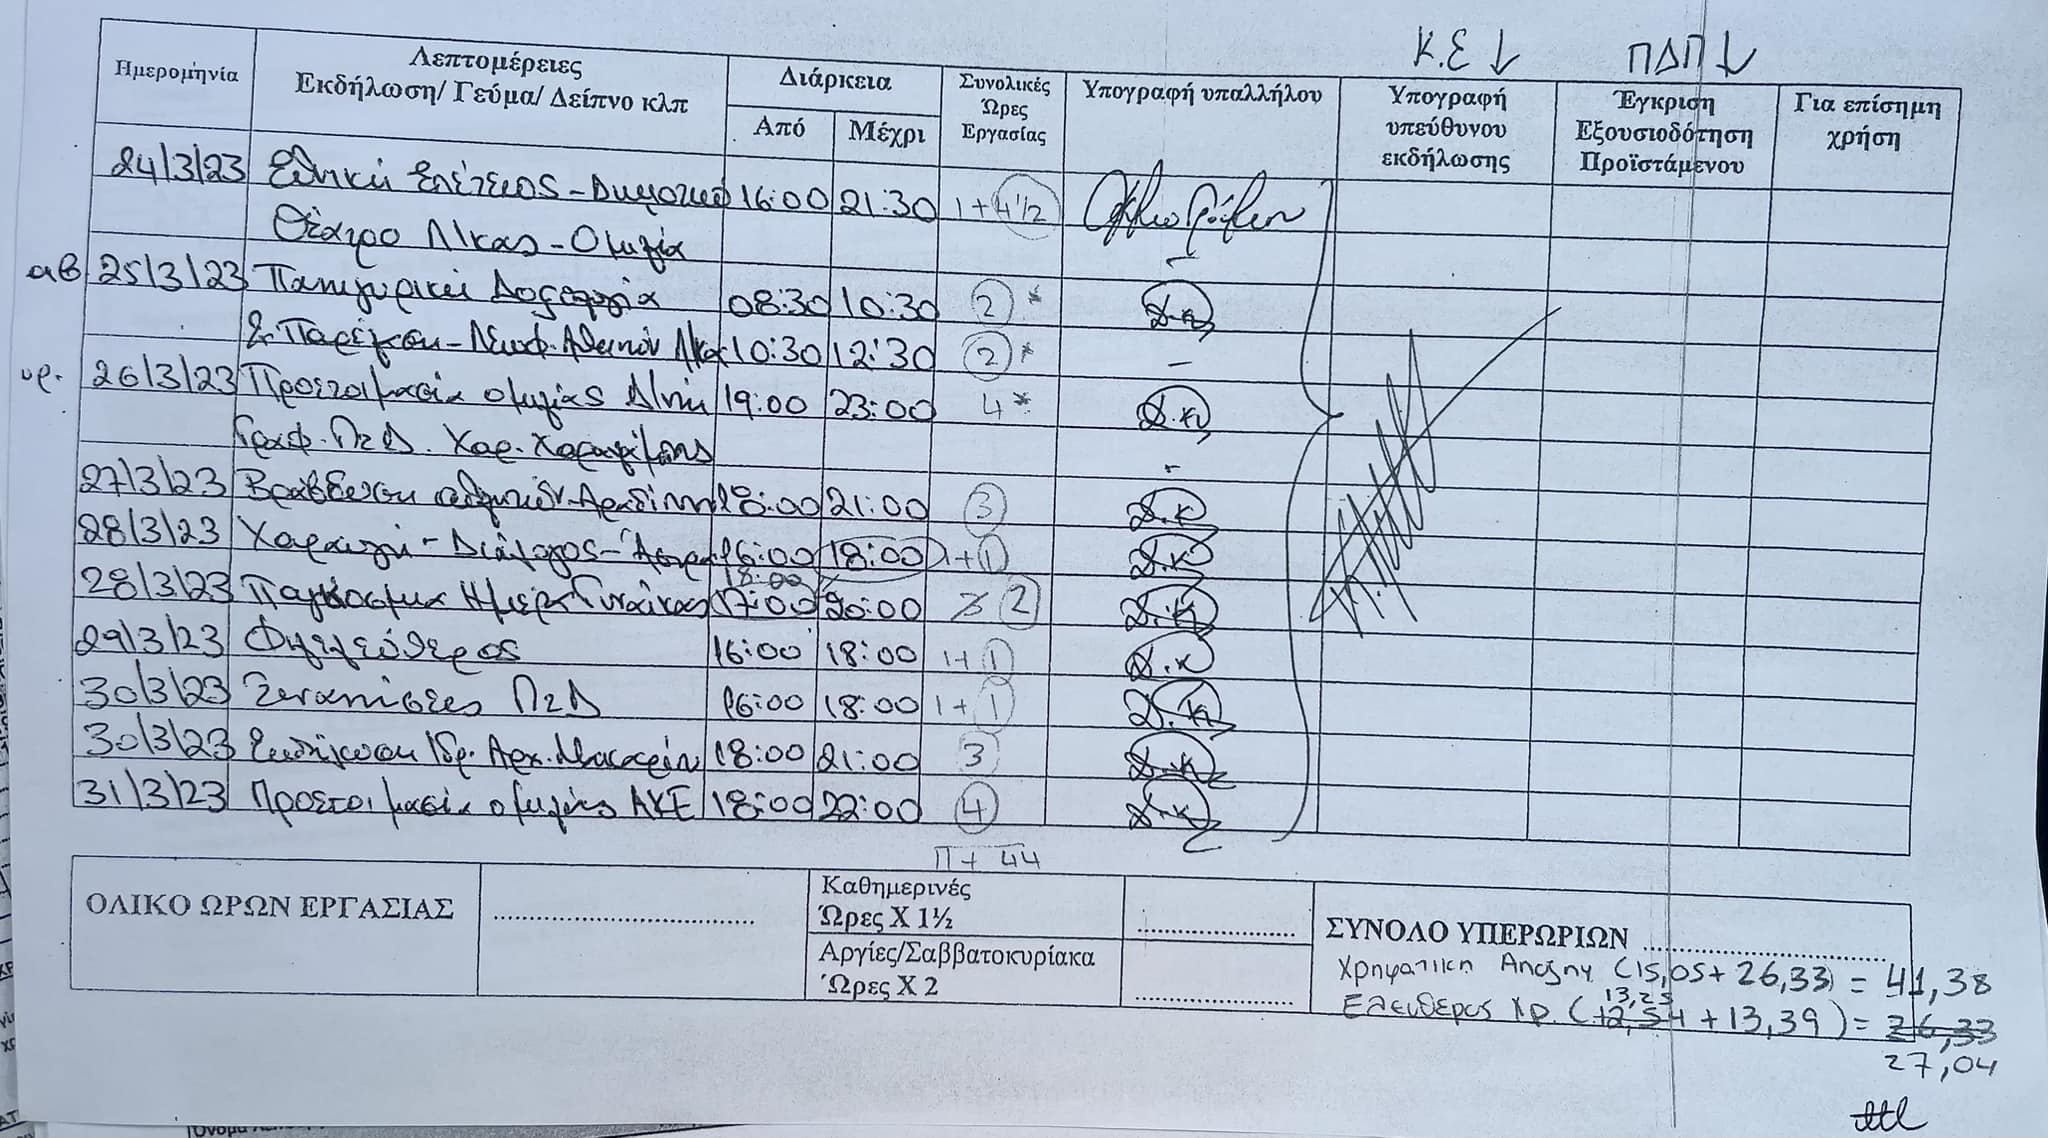 Κ.Ε ↓ ΠΔΠ ↓
Ημερομηνία Λεπτομέρειες Εκδήλωση/ Γεύμα/ Δείπνο κλπ Διάρκεια Συνολικές Ώρες Εργασίας Υπογραφή υπαλλήλου Υπογραφή υπεύθυνου εκδήλωσης Έγκριση Εξουσιοδότηση Προϊστάμενου Για επίσημη χρήση
Από Μέχρι
24/3/23 Εθνική Επέτειος - Δημοτικό 16:00 21:30 1+4½
Θέατρο Λ/κας - Ομιλία
σβ 25/3/23 Πανηγυρική Δοξολογία 08:30 10:30 2 *
& Παρέλαση - 10:30 12:30 2 * -
κυρ. 26/3/23 Προετοιμασία ομιλίας 19:00 23:00 4 * Δ.κ
Γραφ. ΠτΔ. Χαρ.
27/3/23 Βράβευση αθλητών 18:00 21:00 3 Δ.κ
28/3/23 Χαραυγή - Διάλογος - 16:00 18:00 1+1 Δ.κ
18:00
28/3/23 Παγκόσμια Ημέρα Γυναίκας 17:00 20:00 3 2 Δ.κ
29/3/23 Φιλελεύθερος 16:00 18:00 1+1 Δ.κ
30/3/23 Συναντήσεις ΠτΔ 16:00 18:00 1+1 Δ.κ
30/3/23 Εκδήλωση Ιδρ. Αρχ. Μακαρίου 18:00 21:00 3 Δ.κ
31/3/23 Προετοιμασία ομιλίας 18:00 22:00 4 Δ.κ
ΟΛΙΚΟ ΩΡΩΝ ΕΡΓΑΣΙΑΣ
Καθημερινές
Ώρες Χ 1½
Αργίες/Σαββατοκυρίακα
Ώρες Χ 2
ΣΥΝΟΛΟ ΥΠΕΡΩΡΙΩΝ
Χρηματική Αποζημ (15,05 + 26,33) = 41,38
13,25
Ελεύθερος Χρ. (12,54 + 13,39) = 26,33
27,04